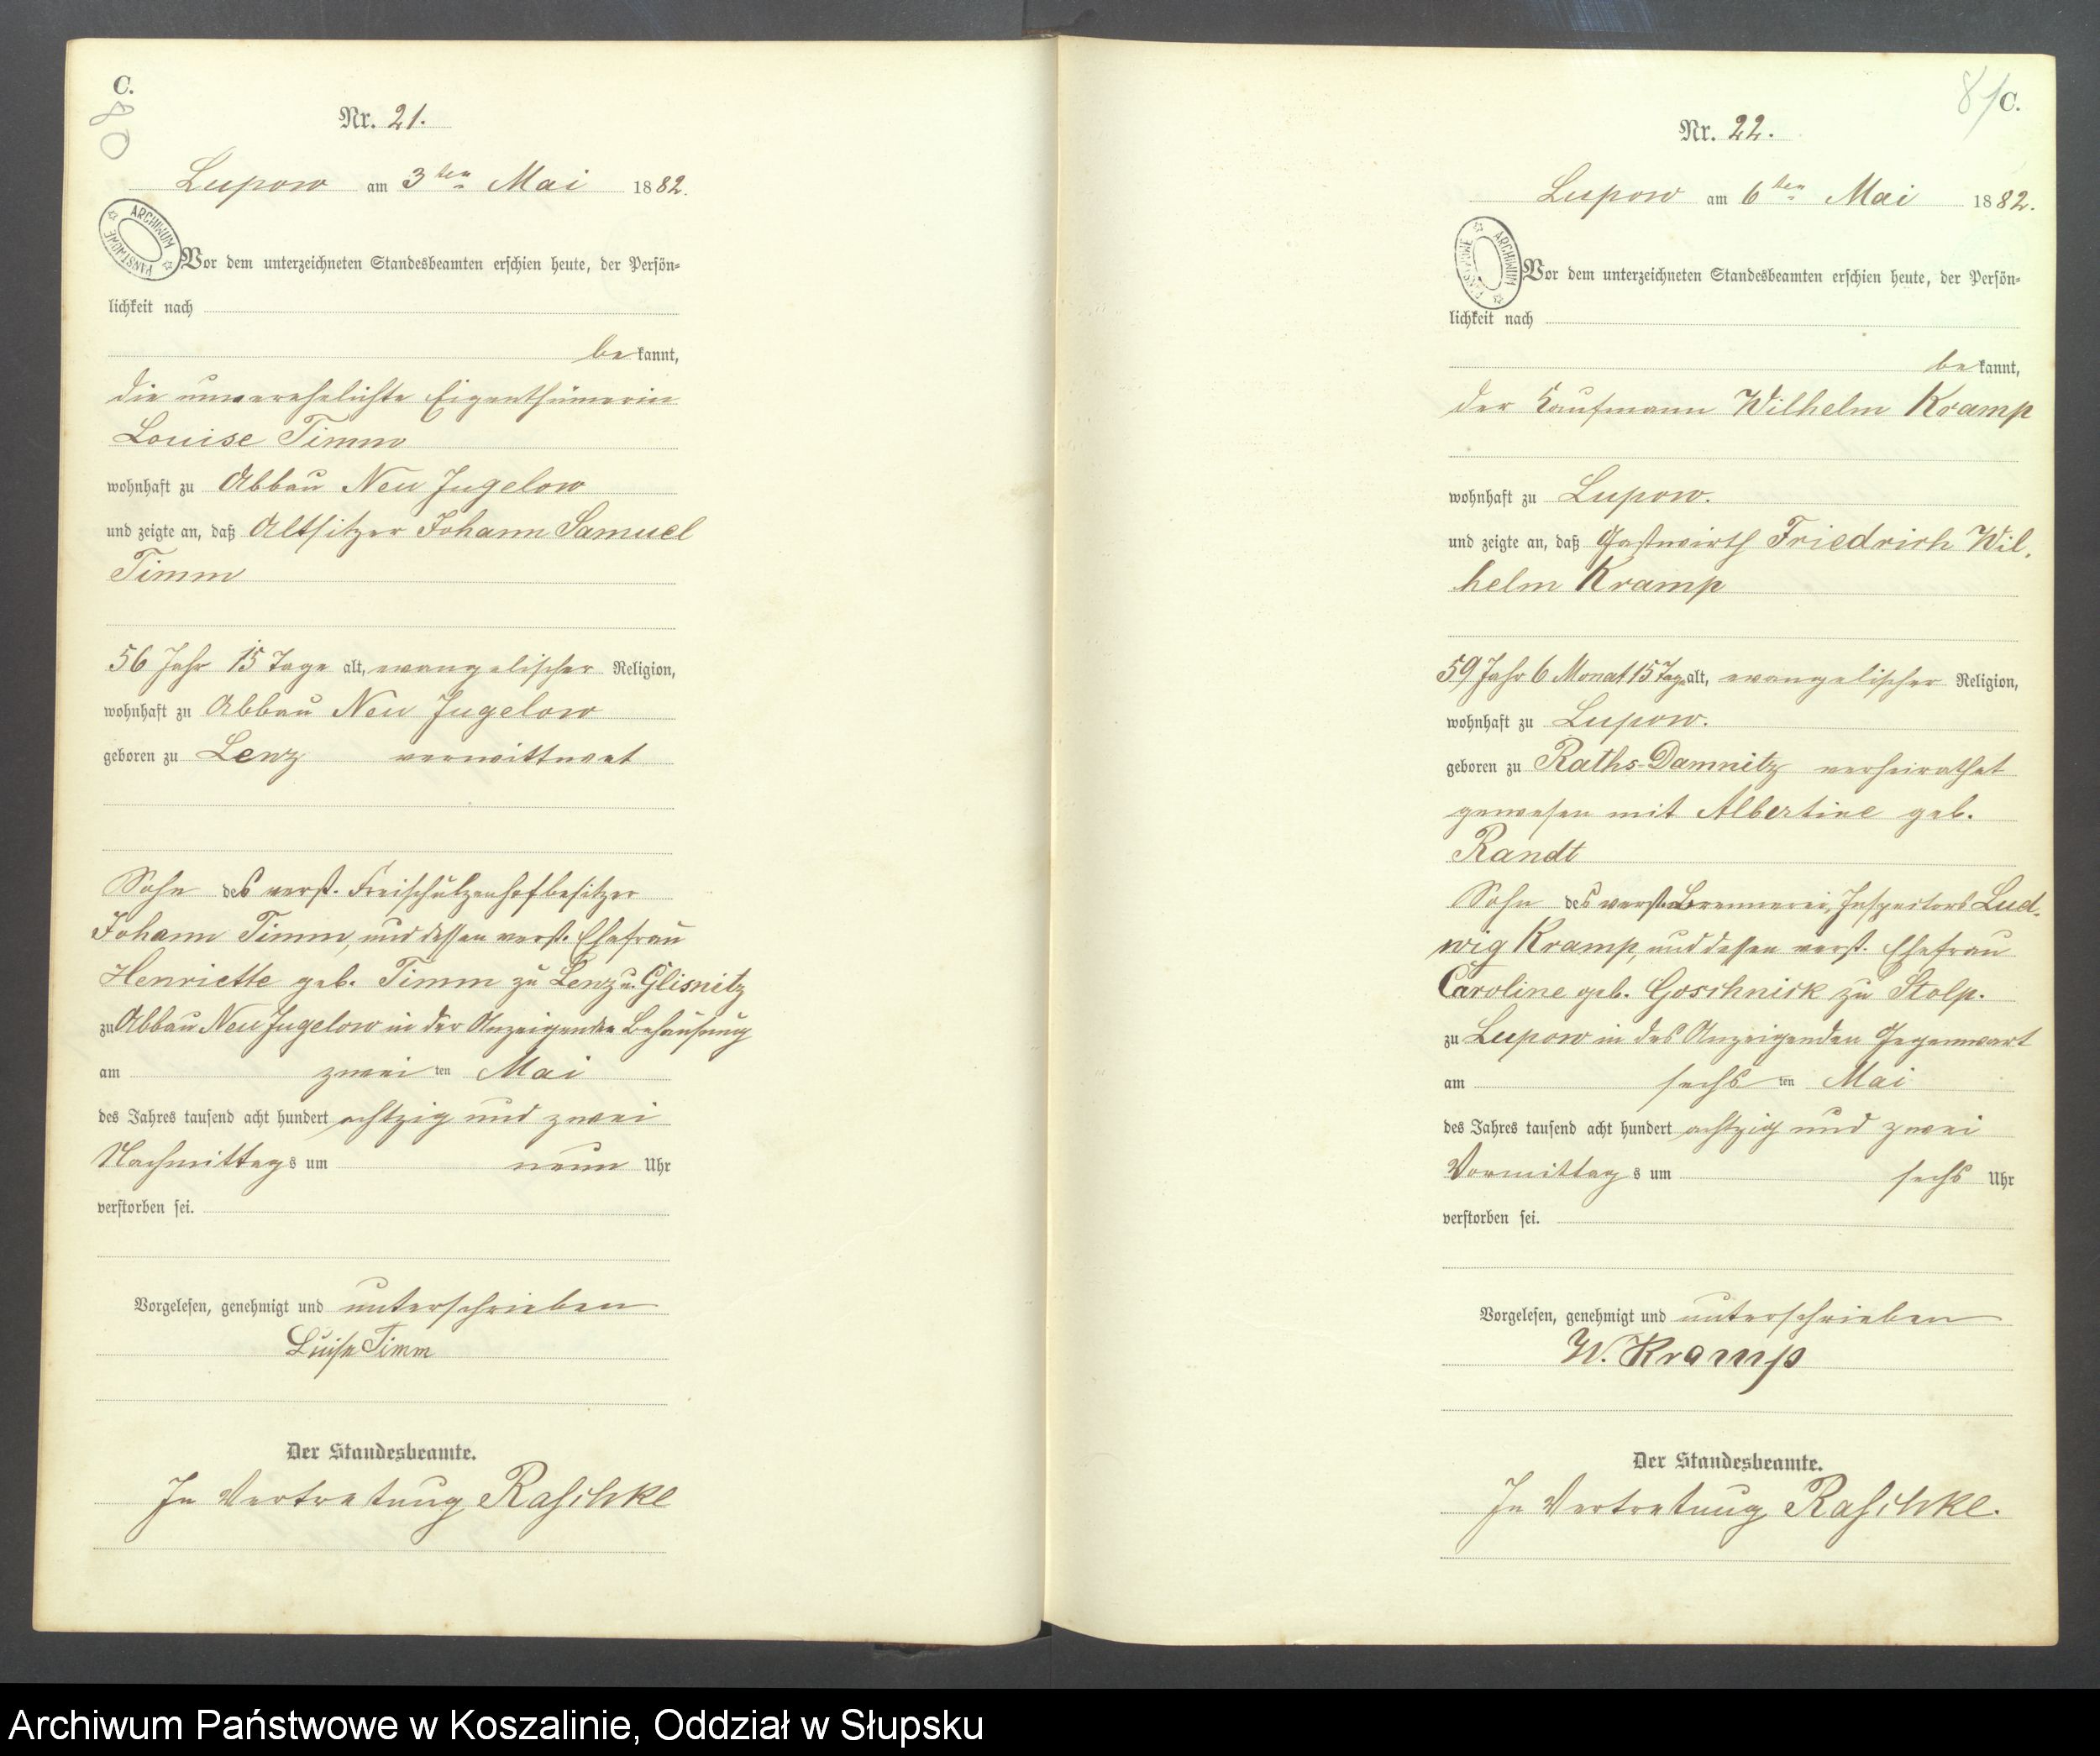 C.
80
Nr. 21.
Lupow am 3ten Mai 1882.
ARCHIWUM PAŃSTWOWE
Vor dem unterzeichneten Standesbeamten erschien heute, der Persön-
lichkeit nach
bekannt,
die unverehelichte Eigenthümerin
Louise Timm
wohnhaft zu Abbau Neu Jugelow
und zeigte an, daß Altsitzer Johann Samuel
Timm
56 Jahr 15 Tage alt, evangelischer Religion,
wohnhaft zu Abbau Neu Jugelow
geboren zu Lenz verwittwet
Sohn des verst. Freischulzenhofbesitzer
Johann Timm, und dessen verst. Ehefrau
Henriette geb. Timm zu Lenz u. Glisnitz
zu Abbau Neu Jugelow in der Anzeigenden Behausung
am zweiten Mai
des Jahres tausend acht hundert achtzig und zwei
Nachmittags um neun Uhr
verstorben sei.
Vorgelesen, genehmigt und unterschrieben
Luise Timm
Der Standesbeamte.
In Vertretung Raschke
81
C.
Nr. 22.
Lupow am 6ten Mai 1882.
ARCHIWUM PAŃSTWOWE
Vor dem unterzeichneten Standesbeamten erschien heute, der Persön-
lichkeit nach
bekannt,
der Kaufmann Wilhelm Kramp
wohnhaft zu Lupow.
und zeigte an, daß Gastwirth Friedrich Wil-
helm Kramp
59 Jahr 6 Monat 15 Tage alt, evangelischer Religion,
wohnhaft zu Lupow.
geboren zu Raths-Damnitz verheirathet
gewesen mit Albertine geb.
Randt
Sohn des verst. Brennerei-Inspectors Lud-
wig Kramp, und dessen verst. Ehefrau
Caroline geb. Goschnick zu Stolp.
zu Lupow in des Anzeigenden Gegenwart
am sechsten Mai
des Jahres tausend acht hundert achtzig und zwei
Vormittags um sechs Uhr
verstorben sei.
Vorgelesen, genehmigt und unterschrieben
W. Kramp
Der Standesbeamte.
In Vertretung Raschke.
Archiwum Państwowe w Koszalinie, Oddział w Słupsku